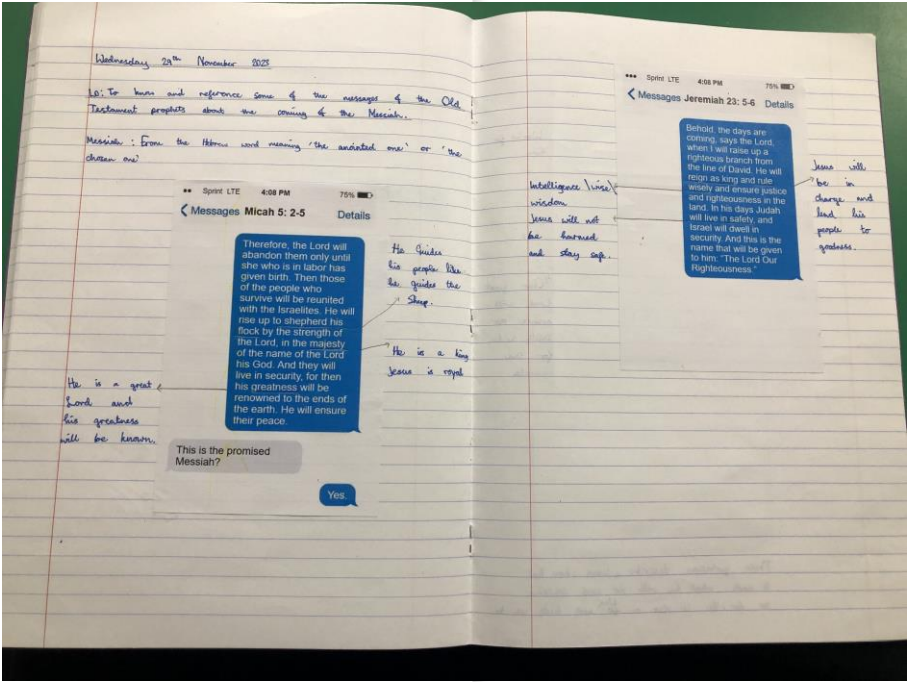 Wednesday 29th November 2023
LO: To know and reference some of the messages of the Old
Testament prophets about the coming of the Messiah.
Messiah : From the Hebrew word meaning 'the anointed one' or 'the
chosen one'
Sprint LTE 4:08 PM 75%
Messages Micah 5: 2-5 Details
Therefore, the Lord will
abandon them only until
she who is in labor has
given birth. Then those
of the people who
survive will be reunited
with the Israelites. He will
rise up to shepherd his
flock by the strength of
the Lord, in the majesty
of the name of the Lord
his God. And they will
live in security, for then
his greatness will be
renowned to the ends of
the earth. He will ensure
their peace.
This is the promised
Messiah?
Yes.
He Guides
his people like
he guides the
Sheep.
He is a king
Jesus is royal
He is a great
Lord and
his greatness
will be known.
Sprint LTE 4:08 PM 75%
Messages Jeremiah 23: 5-6 Details
Behold, the days are
coming, says the Lord,
when I will raise up a
righteous branch from
the line of David. He will
reign as king and rule
wisely and ensure justice
and righteousness in the
land. In his days Judah
will live in safety, and
Israel will dwell in
security. And this is the
name that will be given
to him: "The Lord Our
Righteousness."
Intelligence \ wise \
wisdom
Jesus will not
be harmed
and stay safe.
Jesus will
be in
charge and
lead his
people to
goodness.